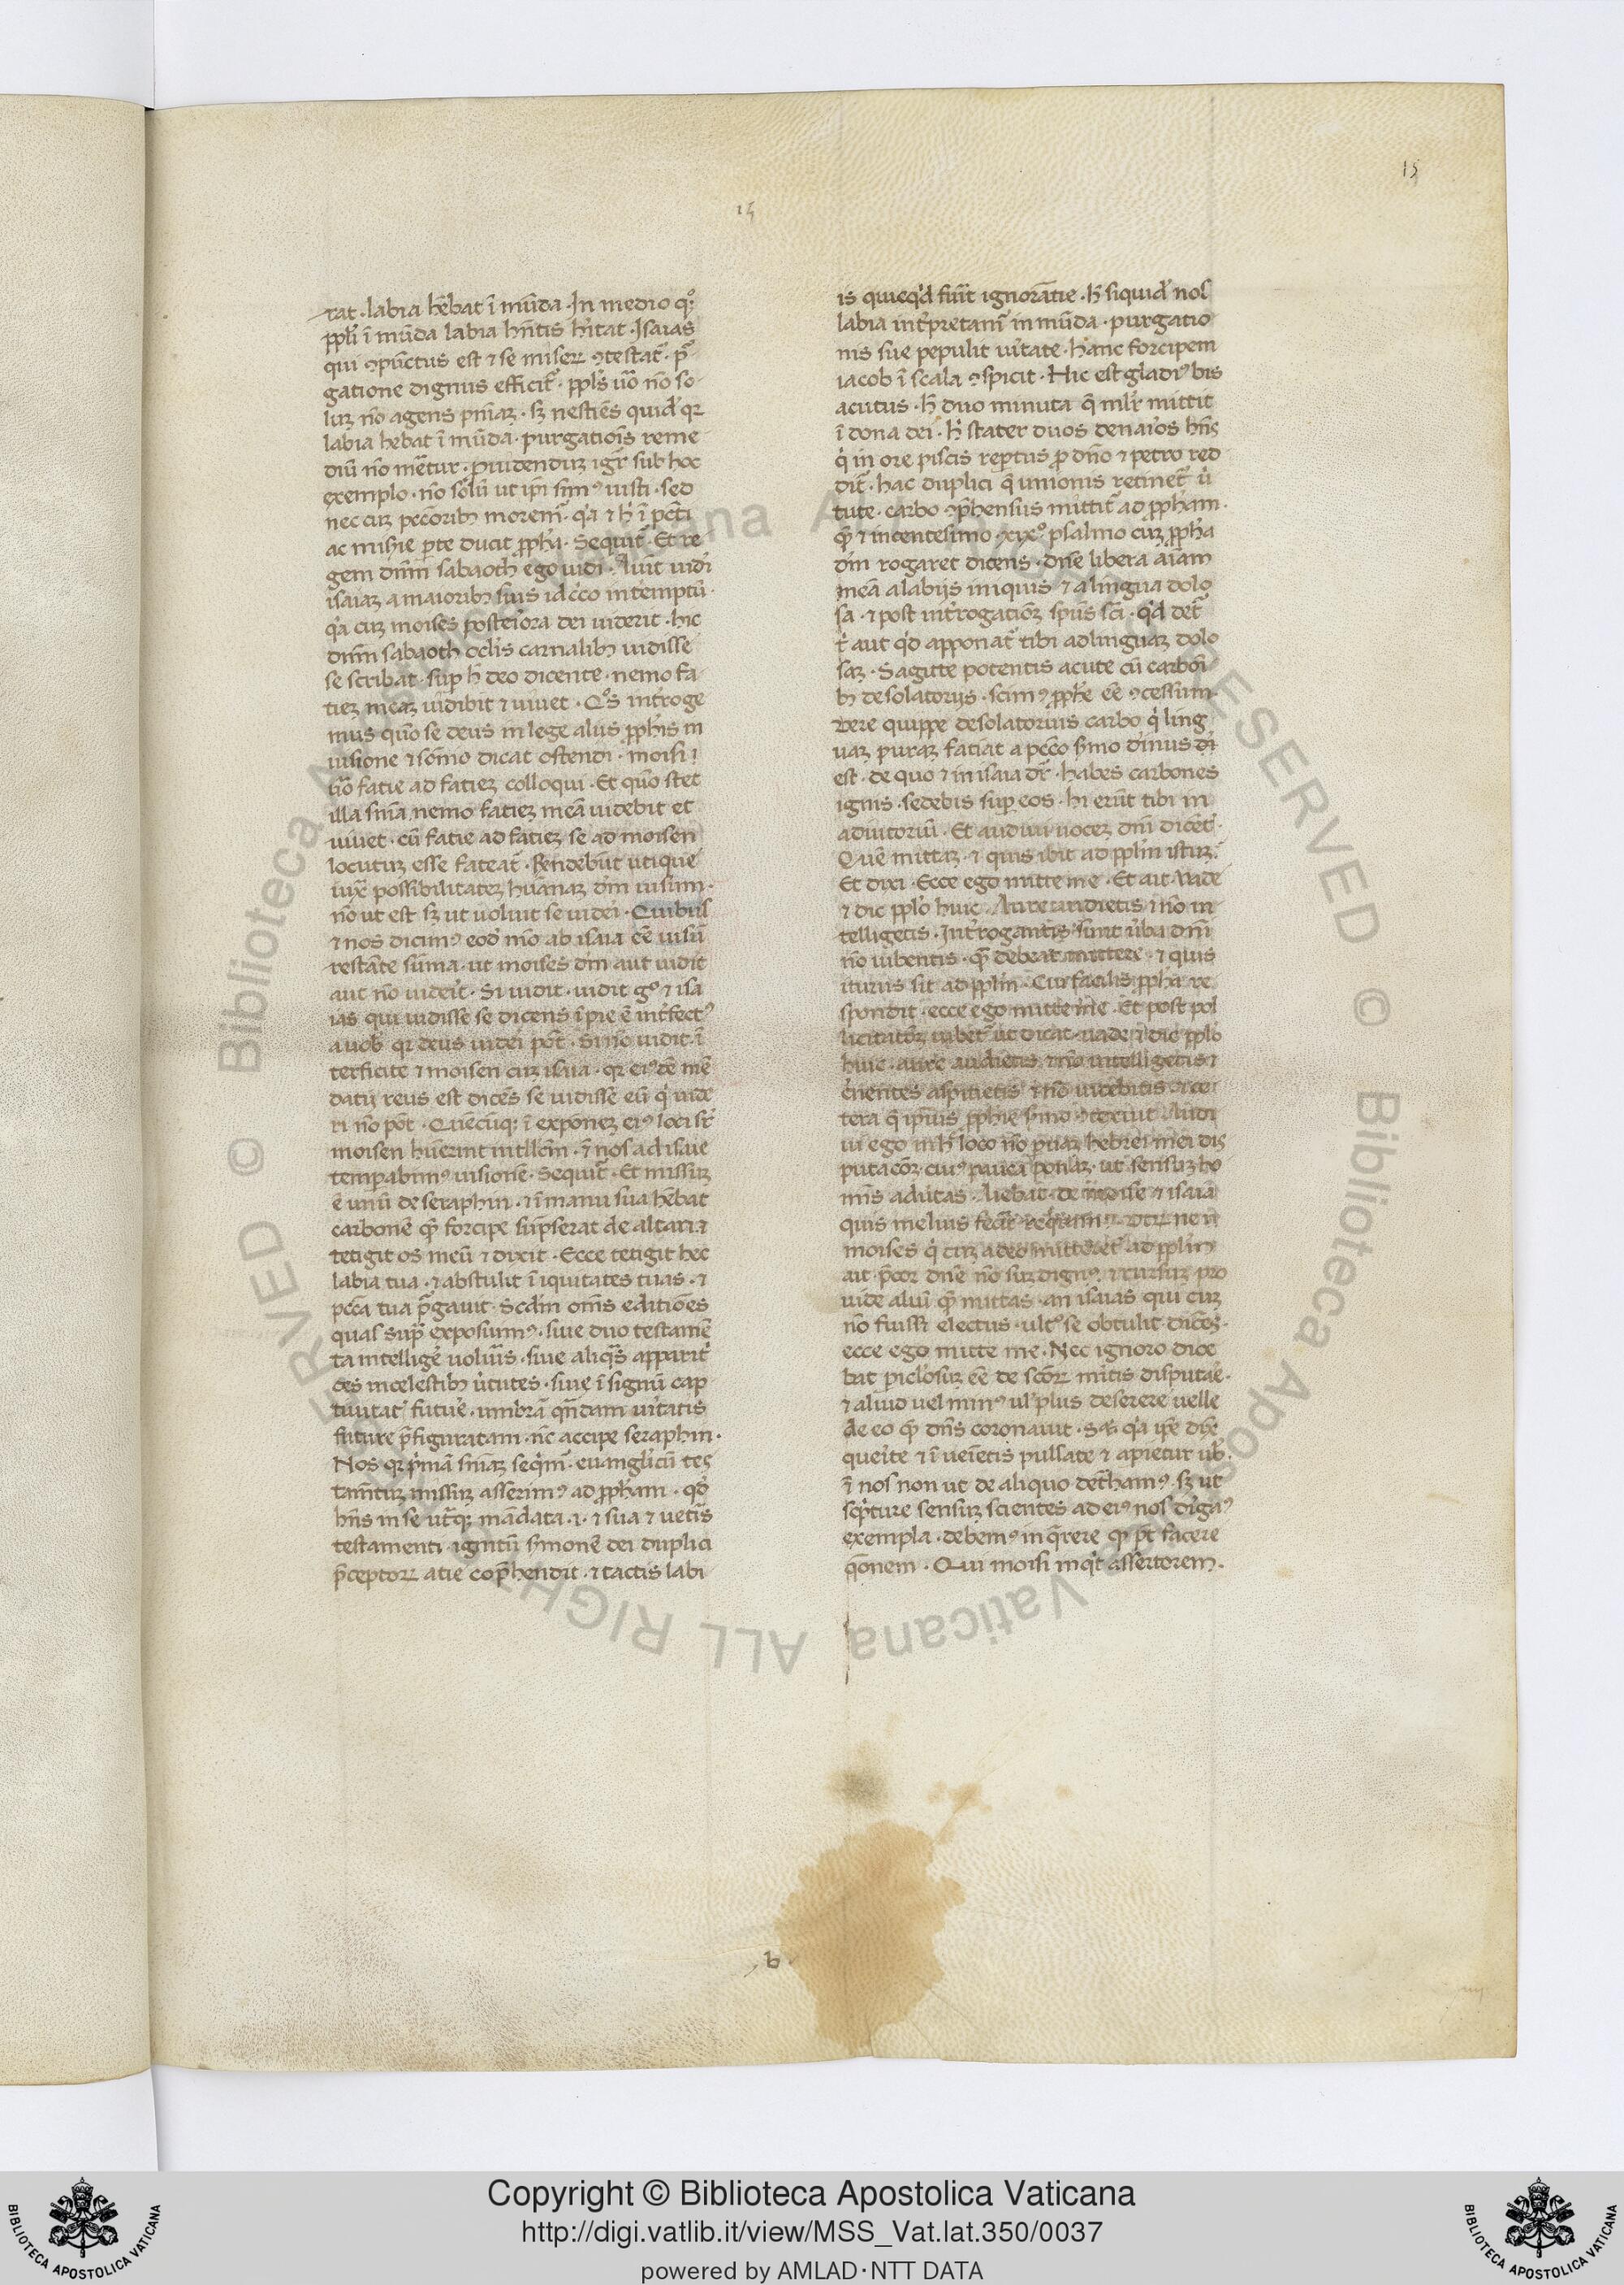 15
15
tat · labia hēbat ī mūda · In medio q̊
ppłi ī mūda labia hn̄tis hītat · Isaias
qui ꝯpūctus est ⁊ se miseꝝ ꝯtestat᷑ · p̄
gatione dignus efficit᷑ · ppls ūo nō so
luꝫ nō agens pn̄iaꝫ · sꝫ nesciēs quid' qꝛ
labia hebat ī mūda · purgatiōis reme
diū nō mēretur · ꝓuidenduꝫ igr̄ sub hoc
exemplo · nō solū ut ip̄i sim᷒ iusti · sed
nec cuꝫ pcc̄oribꝫ moremr̄ · q̇a ⁊ h' ī pct̄i
ac miserie ꝑte ducit ꝓph̄a · Sequit᷑ · Et re
gem dn̄m sabaoth ego uidi · Aiūt uidi
isaiaꝫ a maioribꝫ suis idcc̄o intemptū ·
q̇a cuꝫ moises posteiora dei uiderit · hic
dn̄m sabaoth oclis carnalibꝫ uidisse
se scribat · suꝑ h̄ deo dicente · nemo fa
cieꝫ meaꝫ uidibit ⁊ uiuet · Qͦs int'roge
mus quō se deus in lege aliis ꝓph̄is in
uisione ⁊ sōmno dicat ostendi · moisi
ūo facie ad facieꝫ colloqui · Et quō stet
illa sn̄ia nemo facieꝫ meā uidebit et
uiuet · cū facie ad facieꝫ se ad moisen
locutuꝫ esse fateat᷑ · Rendebūt utique
iuxᵃ possibilitateꝫ hūanaꝫ dm̄ uisum ·
nō ut est sꝫ ut uoluit se uidei · Quibus
⁊ nos dicim᷒ eod' mō ab isaia ēē uisū
restāte sūma · ut moises dm̄ aut uidit
aut nō uiderit · Si uidit · uidit gͦ ⁊ isa
ias qui uidisse se dicens īpie ē int'fect᷒
a uob' qꝛ deus uidei pōt · Si nō uidit · ī
terficite ⁊ moisen cuꝫ isaia · qꝛ ei᷒dē mē
datii reus est dicēs se uidisse eū q̇ uide
ri nō pōt · Quēcūqꝫ ī exponeꝫ ei᷒ loci sr̄
moisen hūerint intllēm · ī nos ad isaie
temꝑabim᷒ uisionē · Sequit᷑ · Et missuꝫ
ē unū de seraphin · ⁊ ī manu sua hēbat
carbonē q̄ forcipe supserat de altari · ⁊
tetigit os meū ⁊ dixit · Ecce tetigit hec
labia tua · ⁊ abstulit īiquitates tuas · ⁊
pcc̄a tua p̄gauit · Scdm om̄s editiōes
quas sup̄ exposuim᷒ · siue duo testamē
ta intellige' uolum̄s · siue aliq̄s apparit'
ces in celestibꝫ ūtutes · siue ī signū cap
tiuitat' futue · umbrā qn̄dam uītatis
future p̄figuratam · nc̄ accipe seraphin ·
Nos qꝛ ṗmā sn̄iaꝫ seqm̄r · euangl'icū tes
tamn̄tuꝫ missuꝫ asserim᷒ ad ꝓph̄am · qd̄
hn̄s in se utrq̨ꝫ mādata · i · ⁊ sua ⁊ uet'is
testamenti · ignitū sm̄onē dei duplici
p̄ceptoꝝ acie cop̄hendit · ⁊ tactis labi
is quicqd' fuīt ignorātie · h̄ siquid' nos
labia int'pretam̄ inmūda · purgatio
nis sue pepulit uītate · hanc forcipem
iacob ī scala ꝯspicit · Hic est gladi᷒ bis
acutus · h̄ duo minuta q̄ ml'r mittit
ī dona dei · h' stater duos denaios hn̄s
q̇ in ore piscis reꝑtus ꝓ dn̄o ⁊ petro red
dit᷑ · hac duplici q̄ unionis retinet᷑ ū
tute · carbo ꝯp̄hensus mittit᷑ ad ꝓph̄am ·
q̄ ⁊ in centesimo · xix̊ psalmo cuꝫ ꝓph̄a
dm̄ rogaret dicens · dn̄e libera āiam
meā a labijs iniquis ⁊ a lingua dolo
sa · ⁊ post int'rogationꝫ spūs sc̄i · qd' det᷑
t' aut qd' apponat᷑ tibi ad linguaꝫ dolo
saꝫ · Sagitte potentis acute cū carboni
bꝫ desolatorijs · scim᷒ ꝓph̄e ēē ꝯcessum ·
Vere quippe desolatorius carbo q̇ ling
uaꝫ puraꝫ faciat a pcc̄o sm̄o diīnus di
est · de quo ⁊ in isaia dr̄ · habes carbones
ignis · sedebis suꝑ eos · hi erūt tibi in
adiutoriū · Et audiui uoceꝫ dn̄i dicēt' ·
Quē mittaꝫ · ⁊ quis ibit ad pplm̄ istuꝫ ·
Et dixi · Ecce ego mitte me · Et ait · Uade
⁊ dic pplo huic · Aure audietis ⁊ nō in
telligetis · Int'rogantis sunt ūba dn̄i
nō iubentis · q̄ debeat mittere · ⁊ quis
iturus sit ad pplm̄ · Cui facilis ꝓph̄a re
spondit · ecce ego mitte me · Et post pol
licitatōꝫ iubet᷑ ut dicat · uade ⁊ dic pplo
huic · aure audietis ⁊ nō intelligetis ⁊
c'nentes aspicietis ⁊ nō uidebitis ⁊ ce
tera q̄ ip̄ius ꝓph̄ie sm̄o ꝯtexuit · Audi
ui ego in h' loco nō ꝑuaꝫ hebrei mei dis
putatōꝫ · cui᷒ pauca ponaꝫ · ut sensuꝫ ho
mīs aduītas · Aiebat · de moise ⁊ isaia
quis melius fecit req̄ram᷒ · Utꝝ ne n̄
moises q̇ cuꝫ a deo mitteret᷑ ad pplm̄
ait · p̄cor dn̄e nō suꝫ dign᷒ · ⁊ rursuꝫ pro
uide aliū q̄ mittas · an isaias qui cuꝫ
nō fuisset electus · ult᷒ se obtulit dicēs ·
ecce ego mitte me · Nec ignoro dice
bat ꝑiclosuꝫ ēē de sc̄oꝝ mītis disputae ·
⁊ aliud uel min᷒ ul' plus deserere uelle
de eo q̄ dn̄s coronauit · Sꝫ q̇a ip̄e dix̄
queite ⁊ īueīetis pulsate ⁊ apietur ub' ·
ī nos non ut de aliquo det᷑ham᷒ · sꝫ ut
sc̄pture sensuꝫ scientes ad ei᷒ nos diīga᷒
exempla · debem᷒ inq̄rere q̄ pt' facere
q̄onem · Qui moisi inqt assertorem ·
b
Copyright © Biblioteca Apostolica Vaticana
http://digi.vatlib.it/view/MSS_Vat.lat.350/0037
powered by AMLAD·NTT DATA
BIBLIOTECA APOSTOLICA VATICANA
BIBLIOTECA APOSTOLICA VATICANA